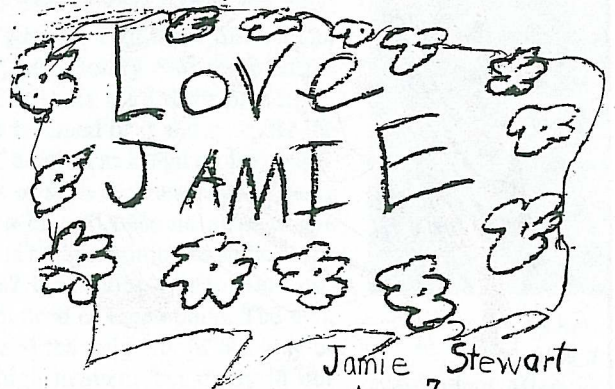 LOVe
JAMIE
Jamie Stewart
7